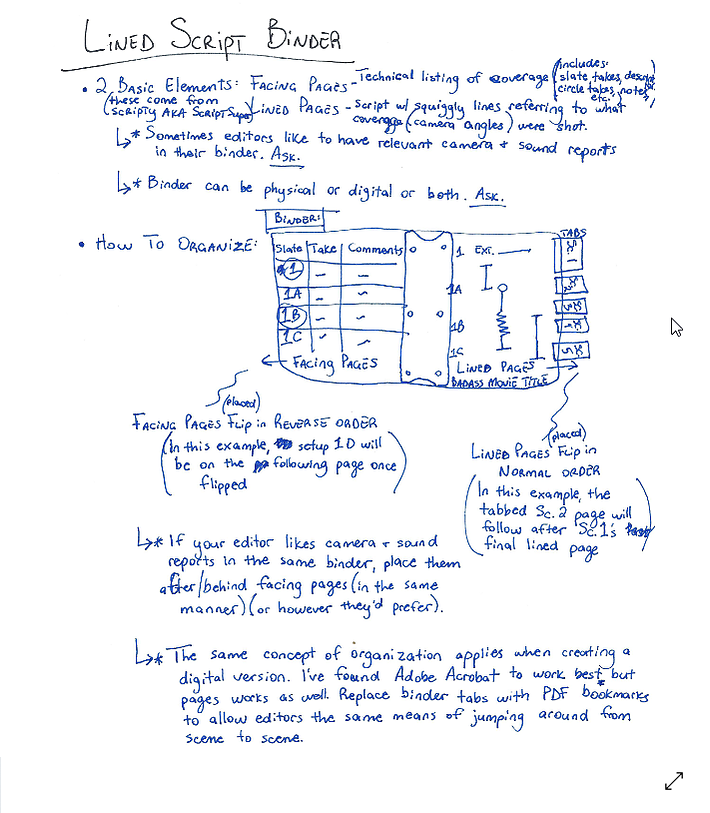 LINED SCRIPT BINDER
• 2 Basic Elements: FACING PAGES - Technical listing of coverage (includes: slate, takes, descript, circle takes, notes, etc.)
(these come from SCRIPTY AKA Script Supe)
LINED PAGES - Script w/ squiggly lines referring to what
coverage (camera angles) were shot.
↳* Sometimes editors like to have relevant camera + sound reports
in their binder. ASK.
↳* Binder can be physical or digital or both. ASK.
• HOW TO ORGANIZE:
BINDER:
Slate Take Comments
1
1A
1B
1C
← FACING PAGES
1 EXT.
1A
1B
1C
LINED PAGES →
BADASS MOVIE TITLE
TABS
SC. 1
(placed)
FACING PAGES FLIP in REVERSE ORDER
(In this example, setup 1D will
be on the following page once
flipped)
(placed)
LINED PAGES FLIP in
NORMAL ORDER
(In this example, the
tabbed Sc.2 page will
follow after Sc.1's
final lined page)
↳* If your editor likes camera + sound
reports in the same binder, place them
after/behind facing pages (in the same
manner) (or however they'd prefer).
↳* The same concept of organization applies when creating a
digital version. I've found Adobe Acrobat to work best, but
pages works as well. Replace binder tabs with PDF bookmarks
to allow editors the same means of jumping around from
scene to scene.